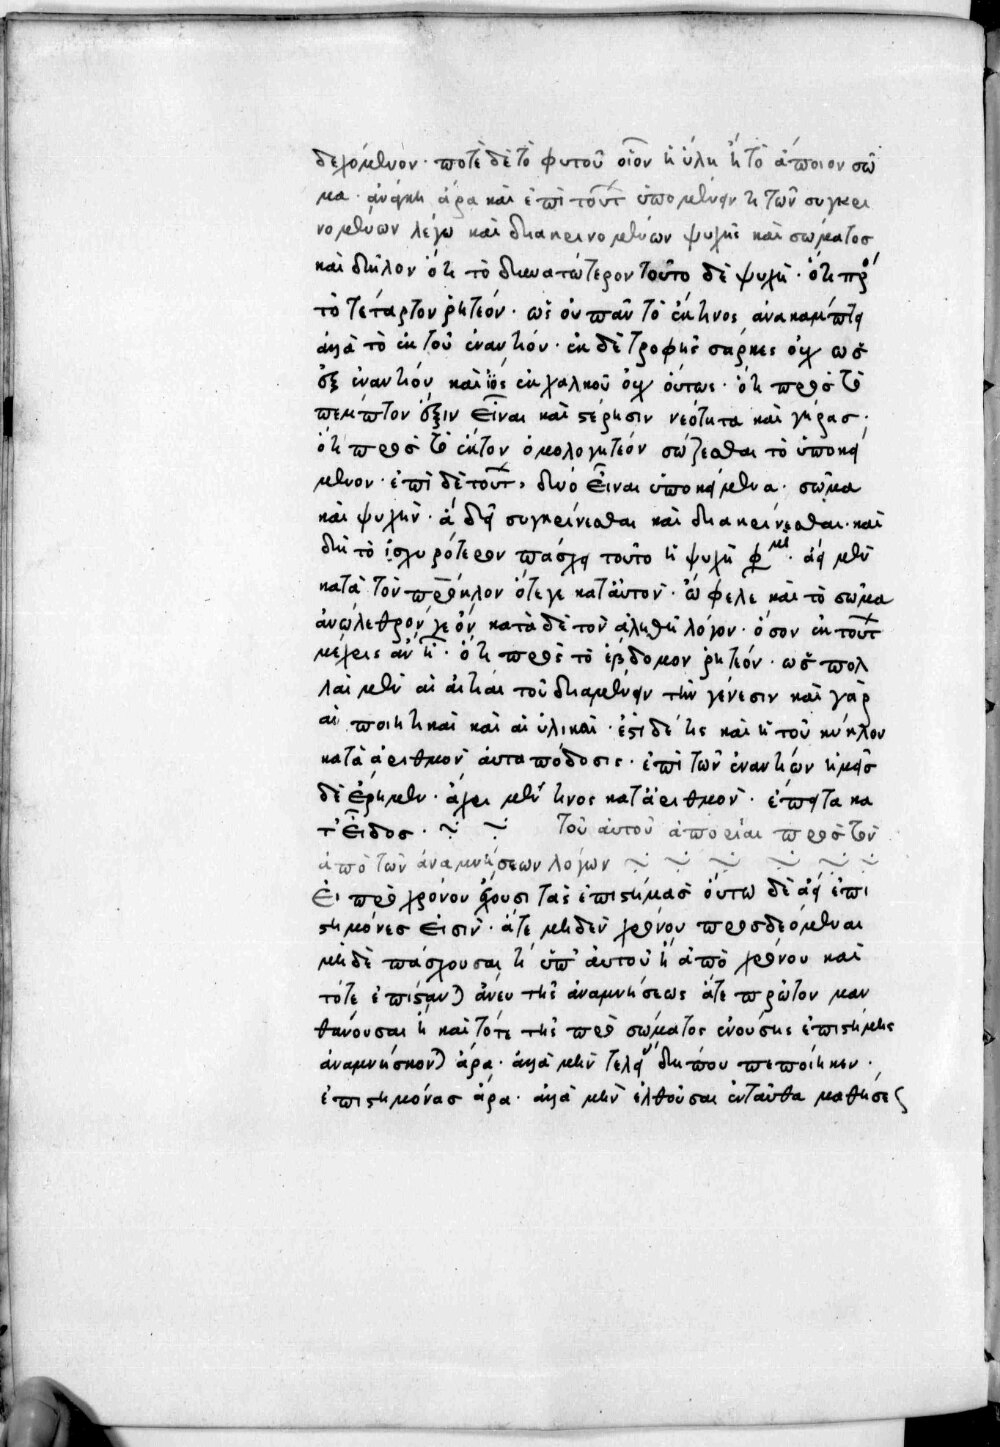 δεχόμενον· ποτὲ δὲ τὸ φυτοῦ οἷον ἡ ὕλη ἢ τὸ ἄποιον σῶ
μα· ἀνάγκη ἄρα καὶ ἐπὶ τούτ ὑπομένειν τι τῶν συγκρι
νομένων λέγω καὶ διακρινομένων ψυχῆς καὶ σώματος
καὶ δῆλον ὅτι τὸ δυνατώτερον τοῦτο δὲ ψυχή· ὅτι πρὸς
τὸ τέταρτον ῥητέον· ὡς οὐ πᾶν τὸ ἔκ τινος ἀνακάμπτει
ἀλλὰ τὸ ἐκ τοῦ ἐναντίου· ἐκ δὲ τροφῆς σάρκες οὐχ ὡς
ἐξ ἐναντίου καὶ ἰὸς ἐκ χαλκοῦ οὐχ οὕτως· ὅτι πρὸς τὸ
πέμπτον ἕξιν εἶναι καὶ στέρησιν νεότητα καὶ γῆρας·
ὅτι πρὸς τὸ ἕκτον ὁμολογητέον σώζεσθαι τὸ ὑποκεί
μενον· ἐπὶ δὲ τούτ, δύο εἶναι ὑποκείμενα· σῶμα
καὶ ψυχὴν· ἃ δεῖ συγκρίνεσθαι καὶ διακρίνεσθαι· καὶ
δὴ τὸ ἰσχυρότερον πάσχει τοῦτο ἡ ψυχὴ φαμέν· ἀεὶ μὲν
κατὰ τὸν πρόδηλον ὅτε γε κατ' αὐτὸν· ὤφελε καὶ τὸ σῶμα
ἀνώλεθρόν γε ὄν κατὰ δὲ τὸν ἀληθῆ λόγον· ὅσον ἐκ τούτ
μέχρις ἂν ᾖ· ὅτι πρὸς τὸ ἕβδομον ῥητέον· ὡς πολ
λαὶ μὲν αἱ αἰτίαι τοῦ διαμένειν τὴν γένεσιν καὶ γὰρ
αἱ ποιητικαὶ καὶ αἱ ὑλικαὶ· ἔστι δέ τις καὶ ἡ τοῦ κύκλου
κατὰ ἀριθμὸν ἀνταπόδοσις· ἐπὶ τῶν ἐναντίων ἡμεῖς
δὲ ἐροῦμεν· ἄχρι μέν τινος κατ' ἀριθμὸν· ἔπειτα κα
τ' εἶδος· ~ ~ τοῦ αὐτοῦ ἀπορίαι πρὸς τὸν
ἀπὸ τῶν ἀναμνήσεων λόγον ~ ~ ~ ~ ~ ~
Εἰ πρὸ χρόνου ἔχουσι τὰς ἐπιστήμας οὕτω δὲ ἀεὶ ἐπι
στήμονες εἰσὶν· ἅτε μηδὲν χρόνου προσδεόμεναι
μηδὲ πάσχουσαί τι ὑπ' αὐτοῦ ἢ ἀπὸ χρόνου καὶ
τότε ἐπίστανται ἄνευ τῆς ἀναμνήσεως ἅτε πρῶτον μαν
θάνουσαι ἢ καὶ τότε τῆς πρὸ σώματος ἐνούσης ἐπιστήμης
ἀναμνήσκονται ἄρα· ἀλλὰ μὴν τελεί δήπου πεποίηκεν·
ἐπιστήμονας ἄρα· ἀλλὰ μὴν ἐλθοῦσαι ἐνταῦθα μαθήσεως